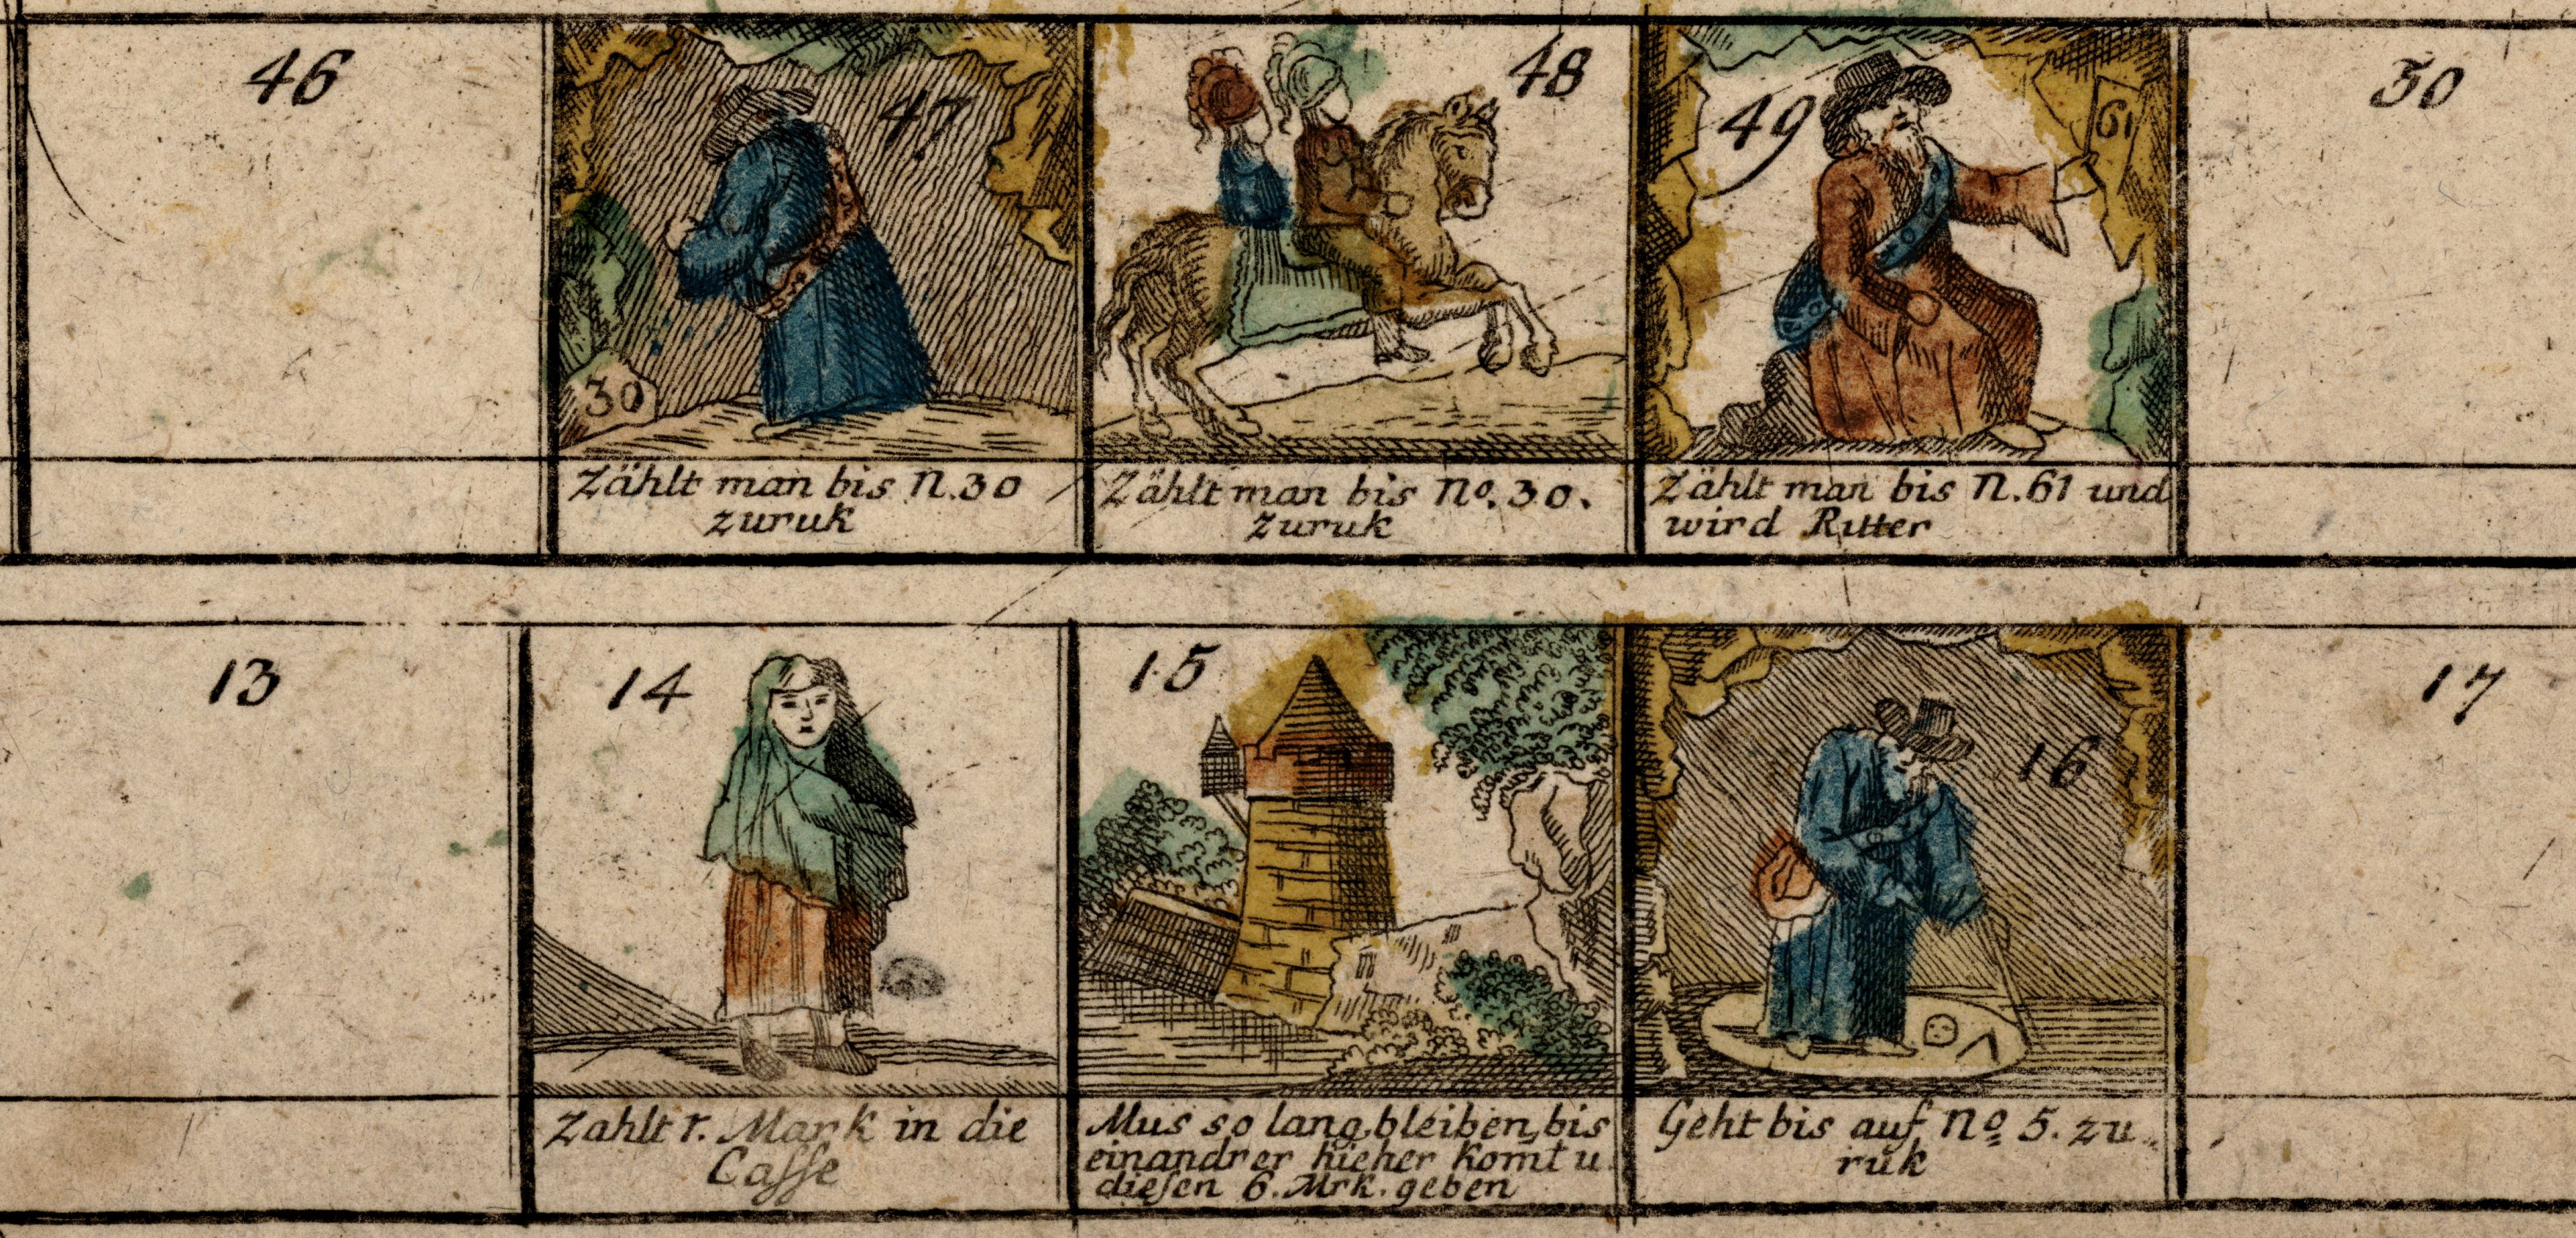 46
47
30
Zählt man bis N.30
zuruk
48
Zählt man bis No. 30.
zuruk
49
61
Zählt man bis N.61 und
wird Ritter
50
13
14
Zahlt 1. Mark in die
Casse
15
Mus so lang bleiben, bis
einandrer hieher komt u.
diesen 6. Mrk. geben
16
Geht bis auf No 5. zu
ruk
17